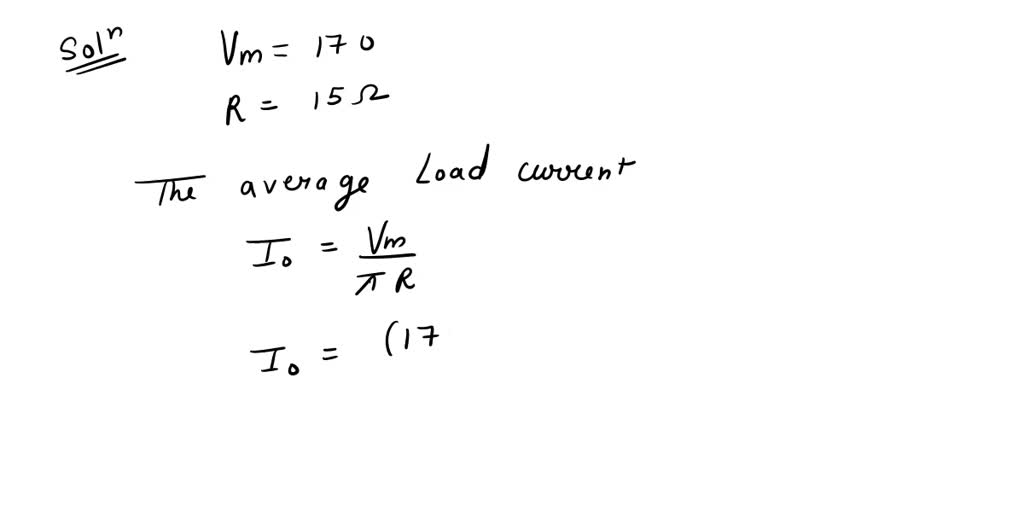 Solⁿ Vm = 170
R = 15 Ω
The average Load current
I₀ = Vm / π R
I₀ = (17